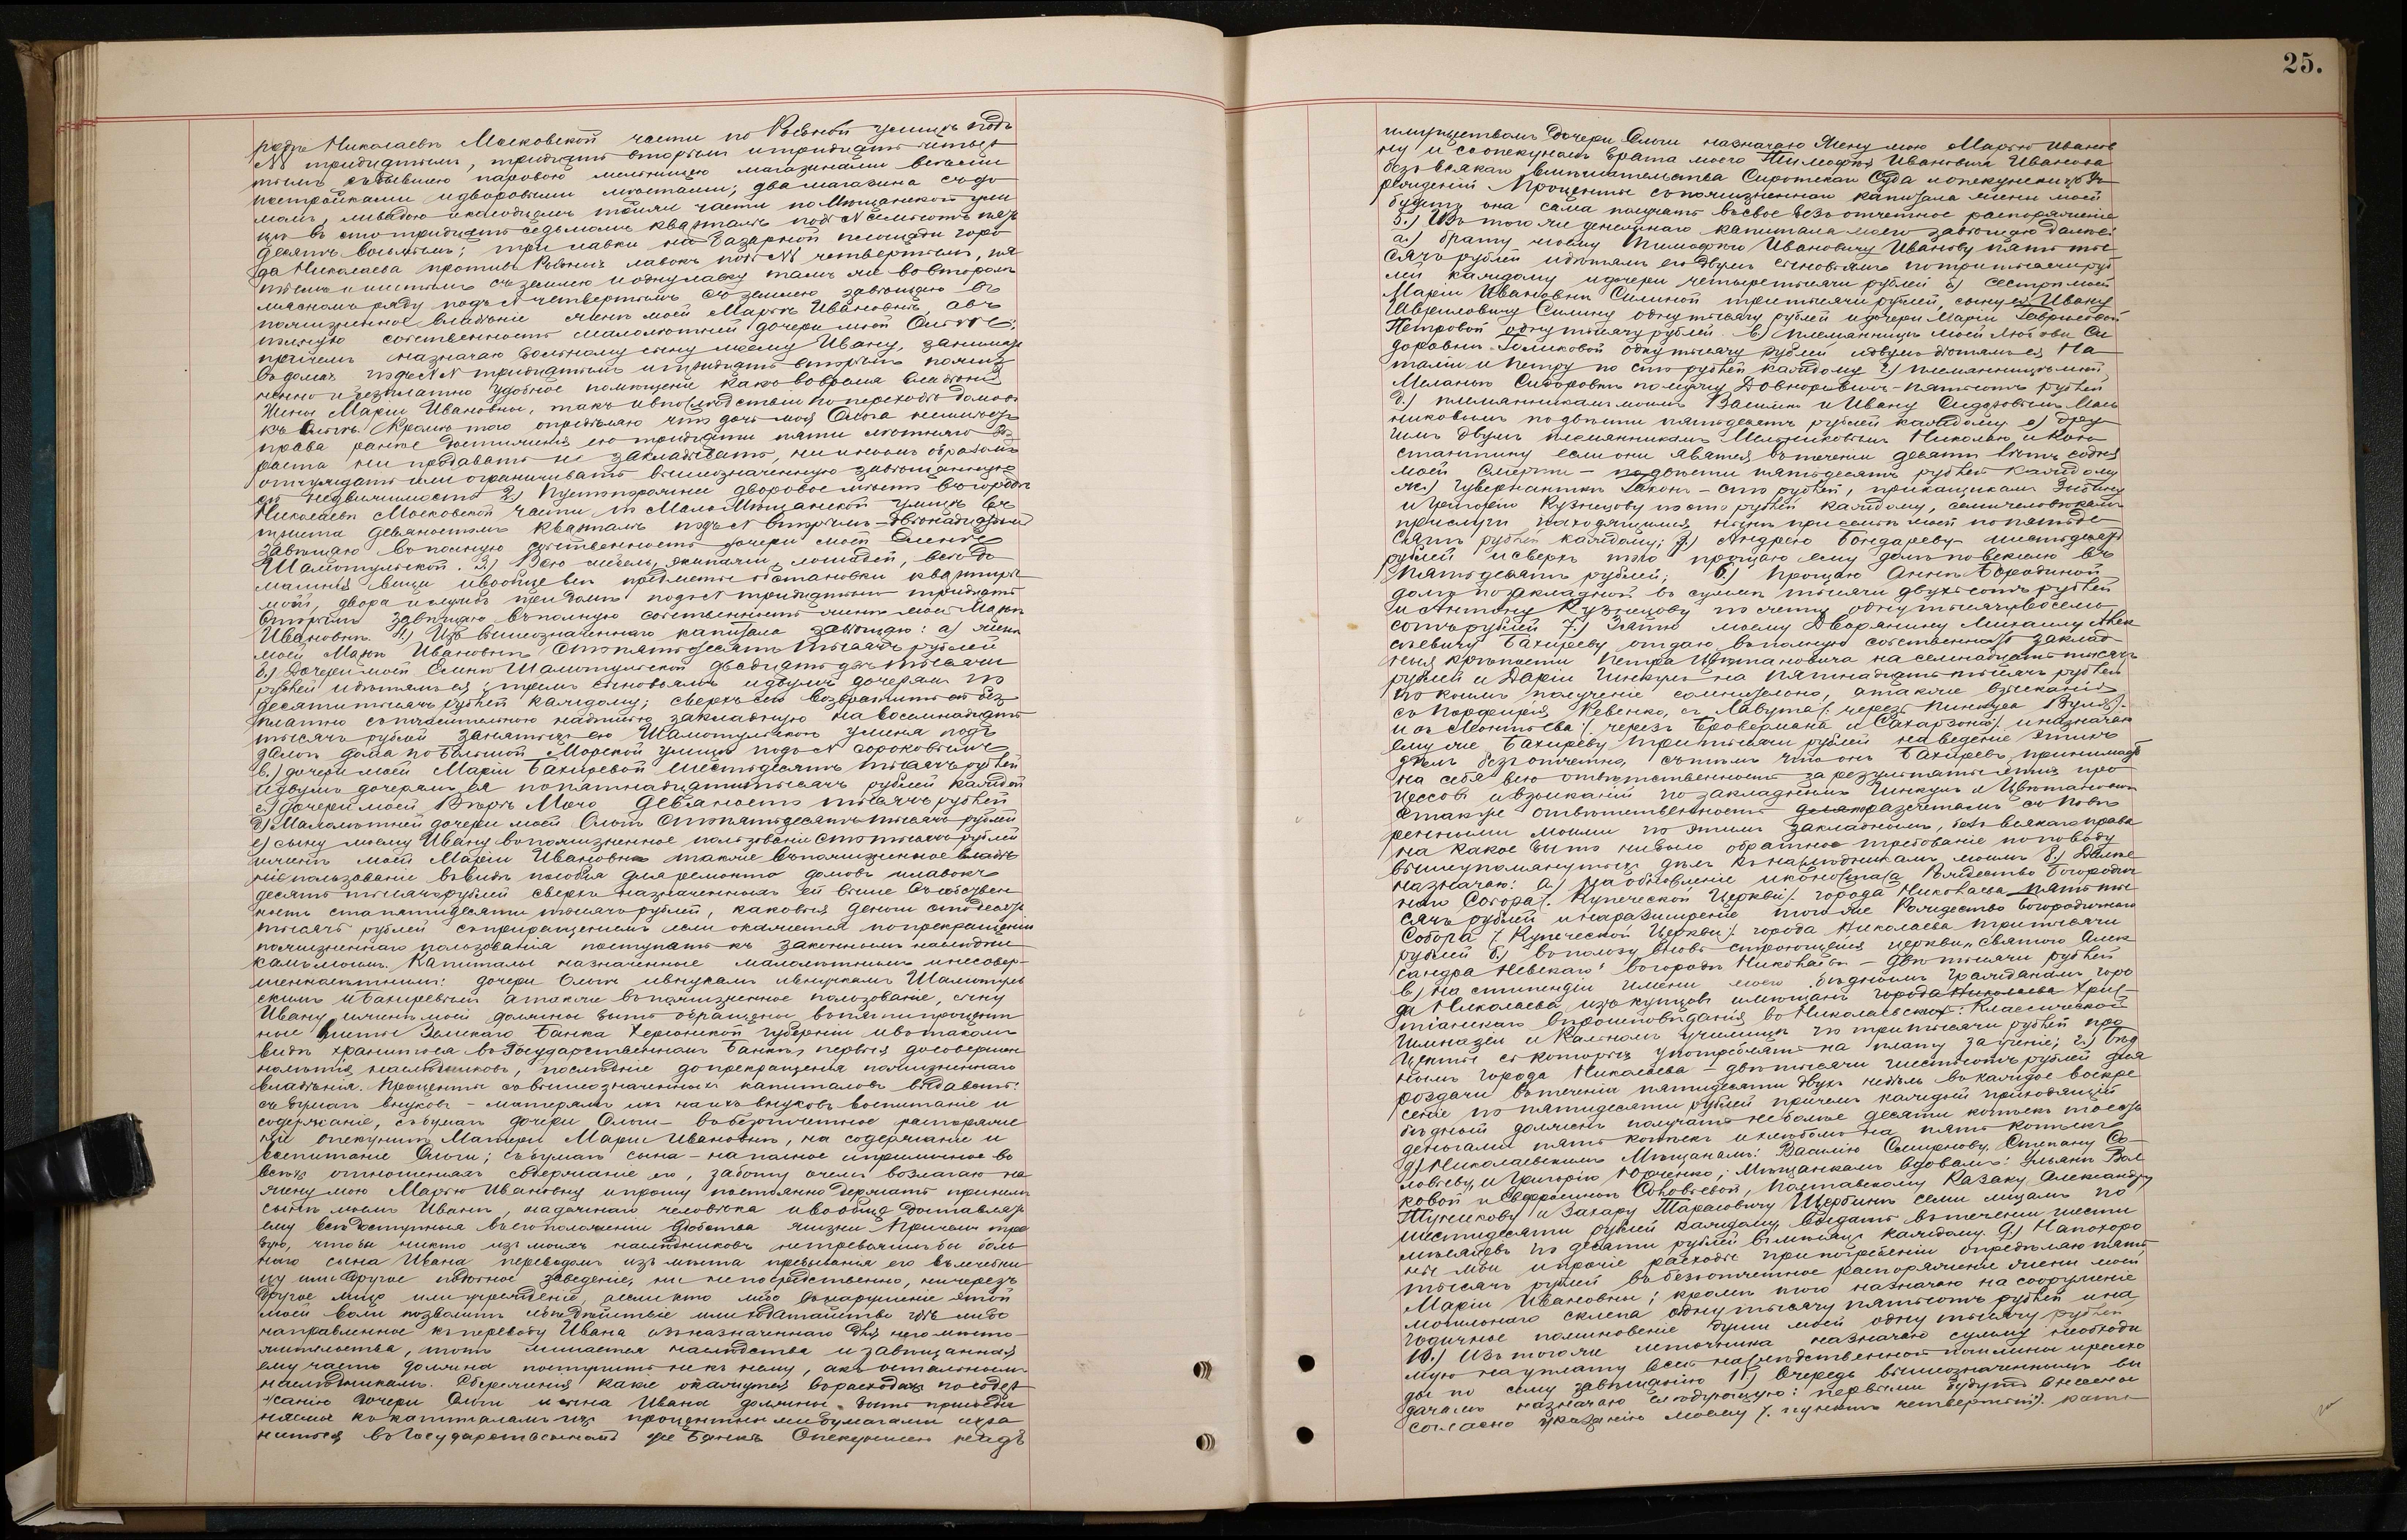 25.
родѣ Николаевѣ Московской части по Рыбной улицѣ подъ
№ тридцатымъ, тридцать вторымъ и тридцать четвер
тымъ съ бывшею паровою мельницею магазинами всѣми
постройками и дворовыми мѣстами; два магазина съ до
момъ, ливадою и колодцемъ той же части по Мѣщанской ули
цѣ въ сто тридцать седьмомъ кварталѣ подъ № семьсотъ пять
десятъ восьмымъ; три лавки на базарной площади горо
да Николаева противъ Рыбныхъ лавокъ подъ №№ четвертымъ, пя
тымъ и шестымъ съ землею и одну лавку тамъ же во второмъ
мясномъ ряду подъ № четвертымъ съ землею завѣщаю въ
пожизненное владѣніе женѣ моей Марѣѣ Ивановнѣ, а въ
полную собственность малолѣтней дочери моей Ольгѣ;
причемъ назначаю больному сыну моему Ивану, занимать
въ домахъ подъ №№ тридцатымъ и тридцать вторымъ пожиз
ненно и безплатно удобное помѣщеніе какъ во время владѣнія
Жены Маріи Ивановны, такъ и впослѣдствіи по переходѣ домовъ
къ Ольгѣ. Кромѣ того опредѣляю что дочь моя Ольга не имѣетъ
права ранѣе достиженія ею тридцати пяти лѣтняго воз
раста ни продавать не закладывать, ни инымъ образомъ
отчуждать или ограничивать вышеозначенную завѣщанную
ей недвижимость 2.) Пустопорожнее дворовое мѣсто въ городѣ
Николаевѣ Московской части по Мало Мѣщанской улицѣ въ
триста девяностомъ кварталѣ подъ № вторымъ-двѣнадцатымъ
завѣщаю въ полную собственность дочери моей Еленѣ
Шамотульской. 3.) Всю мебель, экипажи, лошадей, всѣ до
машнія вещи и вообще всѣ предметы обстановки квартиры
моей, двора и службъ при домѣ подъ № тридцатымъ тридцать
вторымъ завѣщаю въ полную собственность женѣ моей Марьѣ
Ивановнѣ. 4.) Изъ вышеозначеннаго капитала завѣщаю: а) женѣ
моей Марьѣ Ивановнѣ Сто пятьдесятъ тысячъ рублей
б.) Дочери моей Еленѣ Шамотульской двадцать двѣ тысячи
рублей и дѣтямъ ея, тремъ сыновьямъ и двумъ дочерямъ по
десяти тысячъ рублей каждому; сверхъ сего возвратить ей без
платно съ платежною надписью закладную на восемнадцать
тысячъ рублей занятыхъ ею Шамотульскою у меня подъ
залогъ дома по Большой Морской улицѣ подъ № сороковымъ
в.) дочери моей Маріи Бахиревой шестьдесятъ тысячъ рублей
и двумъ дочерямъ ея по пятнадцати тысячъ рублей каждой
г.) дочери моей Вѣрѣ Мочо девяносто тысячъ рублей
д.) Малолѣтней дочери моей Ольгѣ Сто пятьдесятъ тысячъ рублей
е) сыну моему Ивану въ пожизненное пользованіе Сто тысячъ рублей
и женѣ моей Маріи Ивановнѣ также въ пожизненное владѣ
ніе пользованіе въ видѣ пособія для ремонта домовъ и лавокъ
десять тысячъ рублей сверхъ назначенныхъ ей выше въ собствен
ность ста пятидесяти тысячъ рублей, каковыя деньги сто десять
тысячъ рублей съ приращеніемъ если окажется по прекращеніи
пожизненнаго пользованія поступаютъ къ законнымъ наслѣдни
камъ моимъ. Капиталы назначенные малолѣтнимъ и несовер-
шеннолѣтнимъ: дочери Ольгѣ и внукамъ и внучкамъ Шамотуль
скимъ и Бахиревымъ а также въ пожизненное пользованіе, сыну
Ивану и женѣ моей должны быть обращены въ пятипроцент
ные листы Земскаго Банка Херсонской губерніи и въ такомъ
видѣ храниться въ Государственномъ Банкѣ, первыя до совершен
нолѣтія наслѣдниковъ, послѣднія до прекращенія пожизненнаго
владѣнія. Проценты со вышеозначенныхъ капиталовъ выдавать:
съ бумагъ внуковъ - матерямъ ихъ на ихъ внуковъ воспитаніе и
содержаніе, съ бумагъ дочери Ольги - въ безотчетное распоряже
ніе опекуншѣ Матери Маріи Ивановнѣ, на содержаніе и
воспитаніе Ольги; съ бумагъ сына - на полное и приличное во
всѣхъ отношеніяхъ содержаніе его, заботу о чемъ возлагаю на
жену мою Марью Ивановну и прошу постоянно держать при немъ
сынѣ моемъ Иванѣ, надежнаго человѣка и вообще доставлять
ему всѣ доступныя въ его положеніи удобства жизни Причемъ тре
бую, чтобы никто изъ моихъ наслѣдниковъ не тревожилъ бы боль
наго сына Ивана переводомъ изъ мѣста пребыванія его въ лечебни
цу или другое подобное заведеніе, ни непосредственно, ни черезъ
другое лицо или учрежденіе, а если кто либо въ нарушеніе этой
моей воли позволитъ себѣ дѣйствіе или ходатайство гдѣ либо
направленное къ переводу Ивана изъ назначеннаго для него мѣсто-
жительства, тотъ лишается наслѣдства и завѣщанная
ему часть должна поступить не къ нему, а къ остальнымъ
наслѣдникамъ. Сбереженія какіе окажутся въ расходахъ по содер
жанію дочери Ольги и сына Ивана должны быть присоеди
няемы къ капиталамъ ихъ процентными бумагами и хра
ниться въ Государственномъ же Банкѣ Опекуншею надъ
имуществомъ Дочери Ольги назначаю Жену мою Марью Иванов
ну и соопекуномъ брата моего Тимофѣя Ивановича Иванова
безъ всякаго вмѣшательства Сиротскаго Суда и опекунскихъ уч
режденій Проценты съ пожизненнаго капитала жены моей
будетъ она сама получать въ свое безъотчетное распоряженіе
5.) Изъ того же денежнаго капитала моего завѣщаю далѣе:
а.) брату моему Тимофѣю Ивановичу Иванову пять ты
сячъ рублей и дѣтямъ его двумъ сыновьямъ по три тысячи руб
лей каждому и дочери четыре тысячи рублей б) сестрѣ моей
Маріи Ивановнѣ Силиной три тысячи рублей, сыну ея Ивану
Гавриловичу Силину одну тысячу рублей и дочери Маріи Гавриловой
Петровой одну тысячу рублей. в) племянницѣ моей Любови Си
доровнѣ Голиковой одну тысячу рублей и двумъ дѣтямъ ея На
таліи и Петру по сто рублей каждому г.) племянницѣ моей
Меланьѣ Сидоровнѣ по мужу Довнорович - пятьсотъ рублей
д.) племянникамъ моимъ Василію и Ивану Сидоровымъ Мель
никовымъ по двѣсти пятьдесятъ рублей каждому е) дру
гимъ двумъ племянникамъ Мельниковымъ Николаю и Кон
стантину если они явятся въ теченіи девяти лѣтъ со дня
моей смерти - по двѣсти пятьдесятъ рублей каждому
ж.) Гувернанткѣ Гакон - сто рублей, прикащикамъ Зыбину
и Григорію Кузнецову по сто рублей каждому, семи человѣкамъ
прислуги находящимся нынѣ при семьѣ моей по пятьде
сятъ рублей каждому; з.) Андрею Бондареву - шестьдесятъ
рублей и сверхъ того прощаю ему долгъ по векселю въ
пятьдесятъ рублей; 6.) Прощаю Аннѣ Бородиной
долгъ по закладной въ суммѣ тысячи двухсотъ рублей
и Антону Кузнецову по счету одну тысячу восемь
сотъ рублей 7.) Зятю моему Дворянину Михаилу Алек
сѣевичу Бахиреву отдаю въ полную собственность заклад
ныя крѣпости Петра Цвѣтановича на семнадцать тысячъ
рублей и Даріи Гинкулъ на пятнадцать тысячъ рублей
по коимъ полученіе сомнительно, а также взысканія
съ Порфирія Ревенко, съ Лавута /: черезъ Пинкуса Вуля /:
и съ Леонтьева /: черезъ Бровермана и Сахарзона /: и назначаю
ему же Бахиреву три тысячи рублей на веденіе этихъ
дѣлъ безъотчетно, съ тѣмъ что онъ Бахиревъ принимаетъ
на себя всю отвѣтственность за результаты этихъ про
цессовъ и взысканій по закладнымъ Гинкулъ и Цвѣтановича
а также отвѣтственность разсчетамъ съ повѣ
ренными моими по этимъ закладнымъ, безъ всякаго права
на какое бы то ни было обратное требованіе по поводу
вышеупомянутыхъ дѣлъ къ наслѣдникамъ моимъ 8.) Далѣе
назначаю: а.) На обновленіе иконостаса Рождество Богородич
наго Собора /: Купеческой Церкви /: города Николаева пять ты
сячъ рублей и на разширеніе того же Рождество Богородичнаго
Собора /: Купеческой Церкви /: города Николаева три тысячи
рублей б.) въ пользу вновь строющейся церкви „Святого Алек
сандра Невскаго" въ городѣ Николаевѣ - двѣ тысячи рублей
в.) на стипендіи имени моего бѣднымъ гражданамъ горо
да Николаева изъ купцовъ и мѣщанъ города Николаева Хрис-
тіанскаго вѣроисповѣданія въ Николаевскихъ: Классической
Гимназіи и Реальномъ училищѣ по три тысячи рублей про
центы съ которыхъ употреблять на плату за ученіе; г.) бѣд
нымъ города Николаева - двѣ тысячи шестьсотъ рублей для
роздачи въ теченіи пятидесяти двухъ недѣль въ каждое воскре
сеніе по пятидесяти рублей причемъ каждый приходящій
бѣдный долженъ получать не болѣе десяти копѣекъ то есть
деньгами пять копѣекъ и хлѣбомъ на пять копѣекъ
д.) Николаевскимъ Мѣщанамъ: Василію Смирнову, Степану Со-
ловьеву, и Григорію Юрченко; Мѣщанкамъ вдовамъ: Ульянѣ Вол
ковой и Евфросиніи Соловьевой, Полтавскому Казаку Александру
Туникову и Захару Тарасовичу Щербинѣ семи лицамъ по
шестидесяти рублей каждому, выдать въ теченіи шести
мѣсяцевъ по десяти рублей въ мѣсяцъ каждому. 9.) На похоро
ны мои и прочіе расходы при погребеніи опредѣляю пять
тысячъ рублей въ безъотчетное распоряженіе жены моей
Маріи Ивановны; кромѣ того назначаю на сооруженіе
могильнаго склепа одну тысячу пятьсотъ рублей и на
годичное поминовеніе души моей одну тысячу рублей
10.) Изъ того же источника назначаю сумму необходи
мую на уплату всей наслѣдственной пошлины и расхо
ды по сему завѣщанію 11.) Очередь вышеозначеннымъ вы
дачамъ назначаю слѣдующую: первыми будутъ внесены
согласно указанію моему /: пунктъ четвертый /: капи-